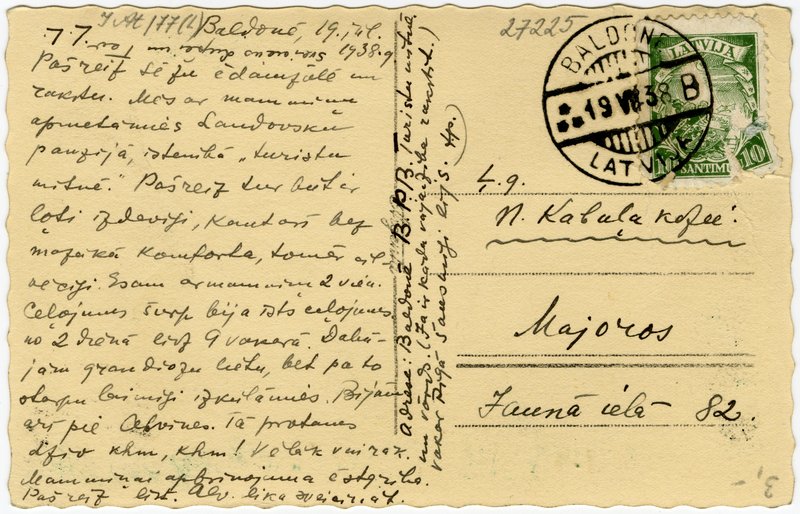 I Alt/77(2)
27225
Baldonē, 19. jūl.
1938. g
Pašreiz sēžu ēdamzālē un
rakstu. Mēs ar mammiņu
apmetāmies Landovsku
panzijā, īstenībā "tūristu
mītnē." Pašreiz tur būt ir
ļoti izdevīgi, kaut arī bez
mazākā komforta, tomēr
Esam ar mammiņu 2 vien.
Ceļojums šurp bija īsts ceļojums
no 2 dienā līdz 9 vakarā. Dabū-
jām grandiozu lietu, bet pa to
laimīgi izkūlāmies. Bijām
arī pie Celvines. Tā protams
dzīv khm, khm! Vēlāk vairāk.
Mammiņai apbrīnojama ēstgriba.
Pašreiz līst. Alv. lika sveicināt.
Adrese: Baldonē B. PB. Tūristu mītnē
un vārds. (Ja ir kāda vajadzība rakstīt.)
vakar Rīgā sausmīgi lija.
BALDONE
19 VII 38
B
LATVIJA
LATVIJA
10
SANTIMU
Ļ. g.
N. Kabula kdzei.
Majoros
Jaunā ielā 82.
3,-